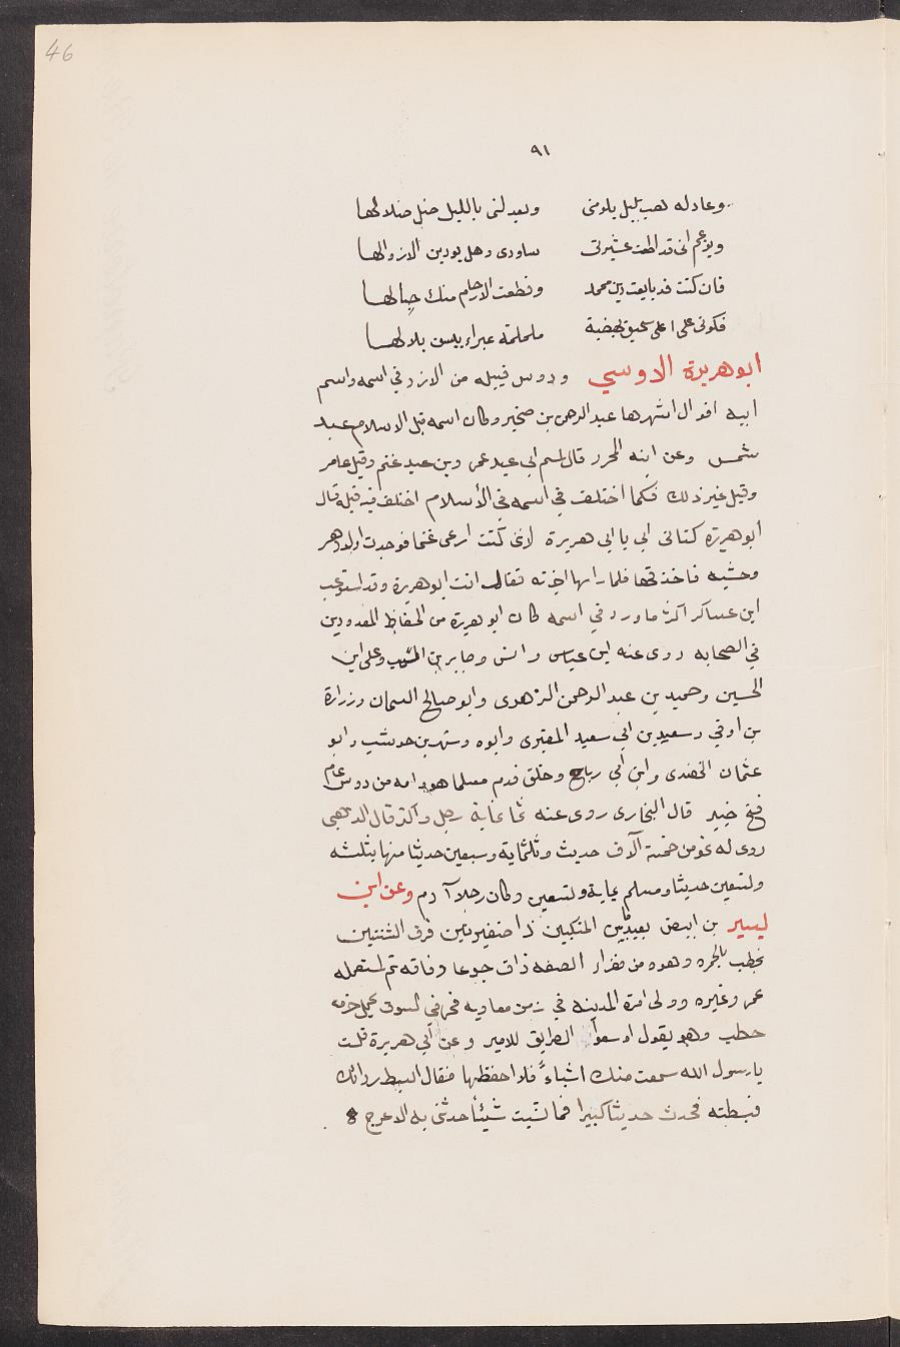 46
٩١
وعادله هبت بليل يلومنى ونعدلنى بالليل ضل ضلالها
ويزعم انى قد اطعت عشيرتى ساودى وهل يودين الازوالها
فان كنت قد بايعت دين محمد وقطعت الارحام منك حبالها
فكونى على اعلى سحيق بهضبة ململمة غبراء يبس بلالها
ابو هريرة الدوسي ودوس قبيله من الازد في اسمه واسم
ابيه اقوال اشهرها عبد الرحمن بن صخير وكان اسمه قبل الاسلام عبد
شمس وعن ابنه المحرر قال اسم ابى عبد عمر وبن عبد غنم وقيل عامر
وقيل غير ذلك فكما اختلف في اسمه في الأسلام اختلف فيه قبله قال
ابو هريرة كنانى ابى بابى هريرة لانى كنت ارعى غنما فوجدت اولاد هر
وحشيه فاخذتها فلما راها اخبرته فقال انت ابو هريرة وقد استوعب
ابن عساكر اكثر ما ورد في اسمه كان ابو هريرة من الحفاظ المعدودين
في الصحابه روى عنه ابن عباس وانس وجابر بن المسيب وعلى ابن
الحسين وحميد بن عبد الرحمن الزهوى وابو صالح السمان وزرارة
بن اوفي وسعيد بن ابي سعيد المقبرى وابوه وشهر بن حوشب وابو
عثمان النهدى وابن أبي رباح وخلق قدم مسلما هو وامه من دوس عام
فتح خيبر قال البخارى روى عنه ثما غاية رجل واكثر قال الذهبى
روى له نحو من خمسة آلاف حديث وثلثماية وسبعين حديثا منها بثلثه
وتسعين حديثا ومسلم بماية وتسعين وكان رجلا آدم وعن ابن
لبيبر بن ابيض بعيد بين المنكبين ذا ضفيرتين فرق الثنتين
يخطب بالحره وهو من فقرار الصفه ذاق جوعا وفاقه ثم استعمله
عمر وغيره وولى امرة المدينه في زمن معاويه فمر في السوق يحمل حزمه
حطب وهو يقول اوسعوا الطريق للامير وعن أبي هريرة قلت
يا رسول الله سمعت منك اشياءً فلا احفظها فقال ابسط ردائك
فبسطته فحدث حديثا كبيرا فما نسيت شيئا حدثنى به الاعرج